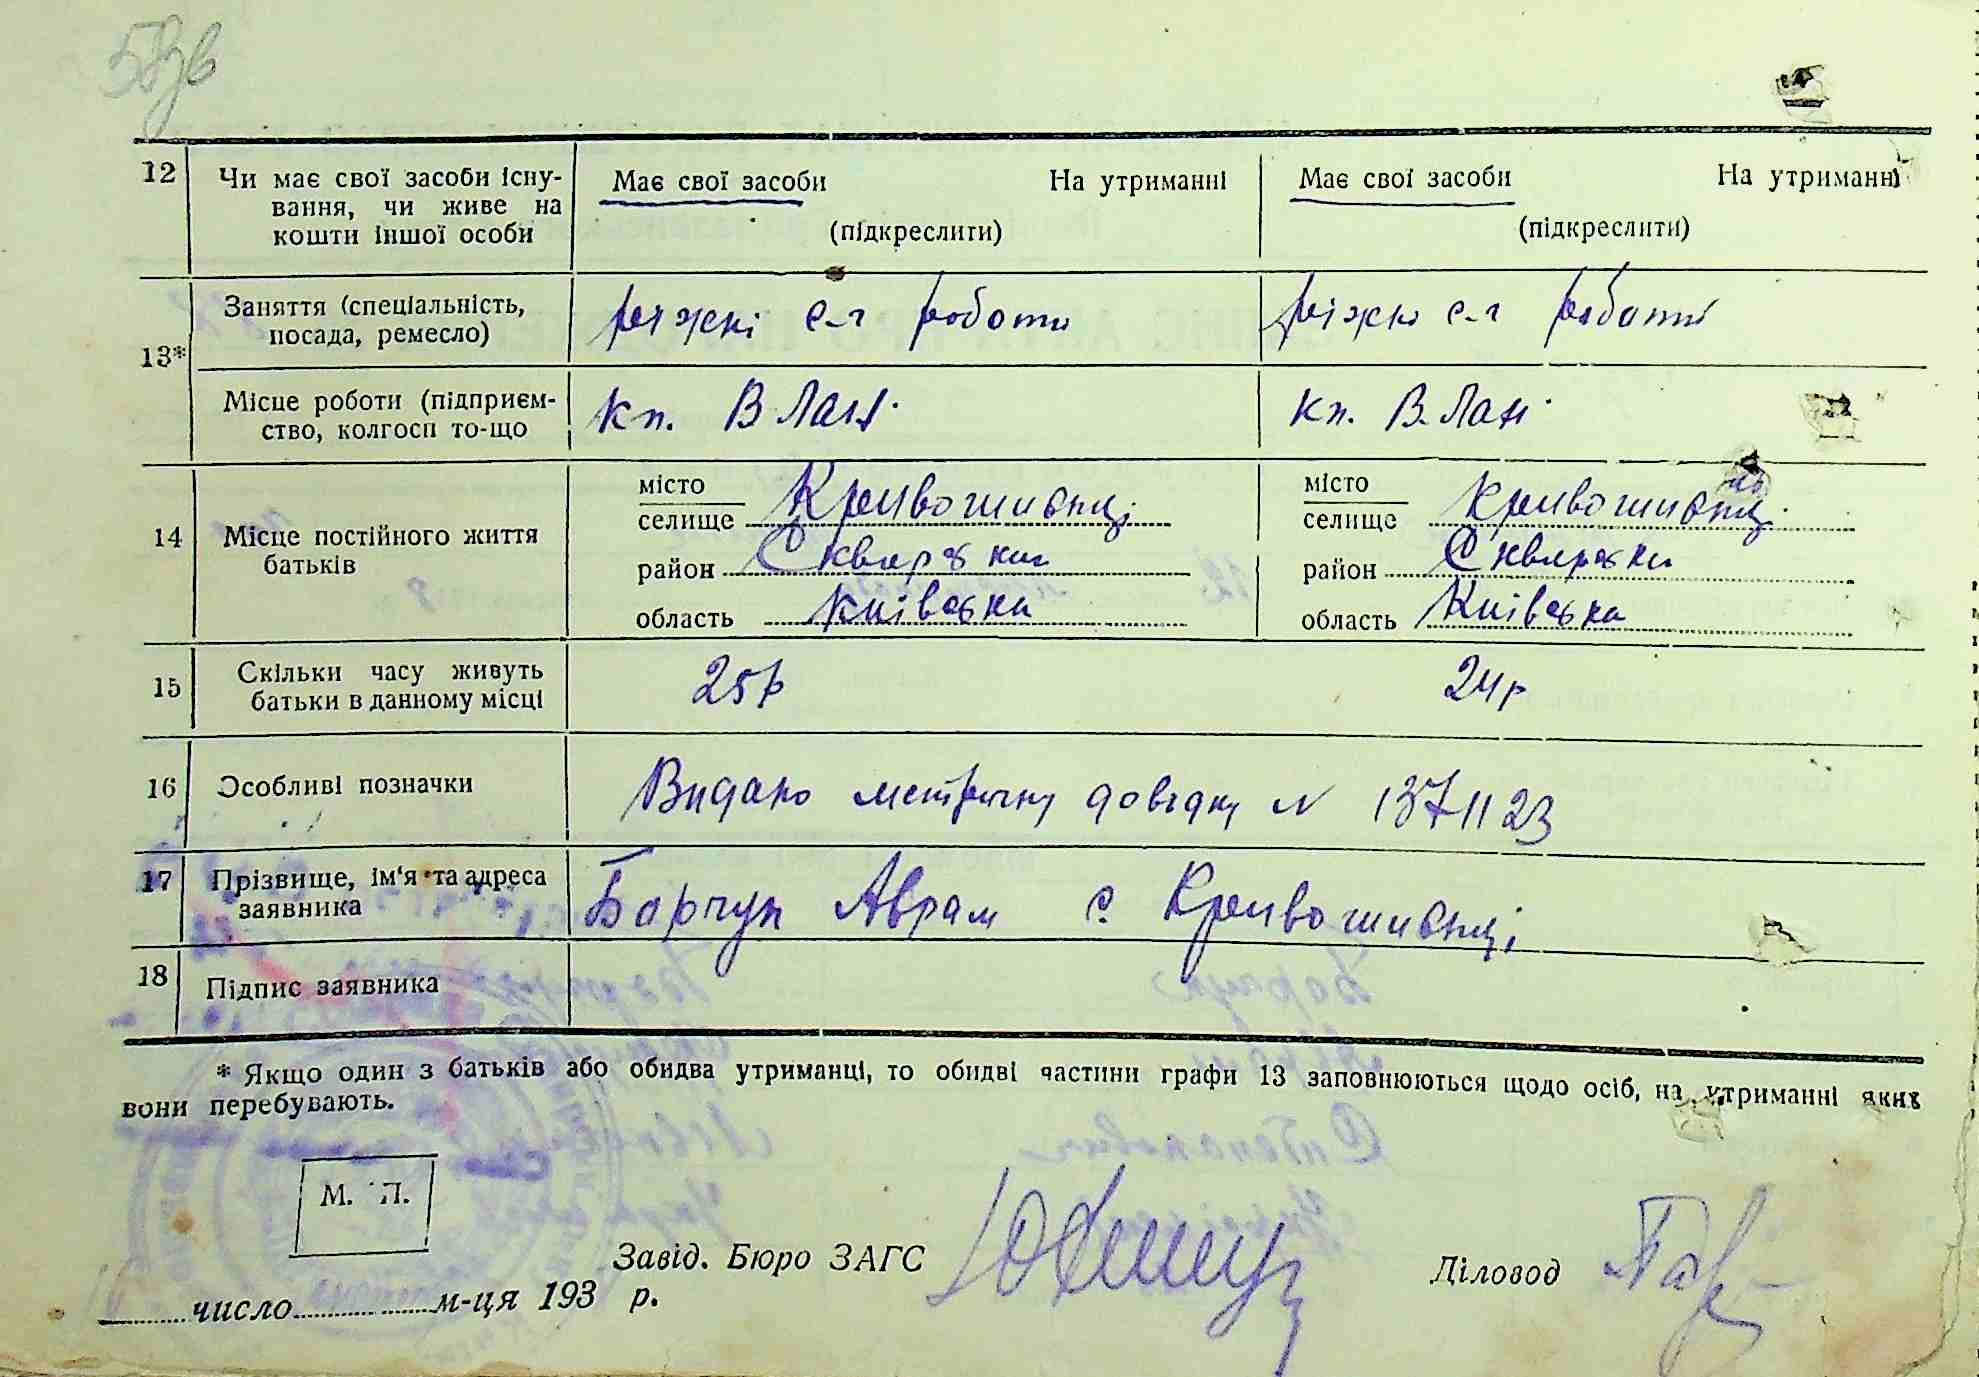 58зв
12 Чи має свої засоби існу-
вання, чи живе на
кошти іншої особи
Має свої засоби На утриманні
(підкреслити)
Має свої засоби На утриманні
(підкреслити)
13*
Заняття (спеціальність,
посада, ремесло)
ріжні с-г роботи
ріжні с-г роботи
Місце роботи (підприєм-
ство, колгосп то-що
кп. В Лані
кп. В. Лані
14 Місце постійного життя
батьків
місто
селище Кривошиєнці
район Сквирськи
область Київська
місто
селище Кривошиєнці
район Сквирськи
область Київська
15 Скільки часу живуть
батьки в данному місці
25р
24р
16 Особливі позначки
Видано метричну довідку N 1371123
17 Прізвище, ім'я та адреса
заявника
Борчук Аврам с. Кривошиєнці
18 Підпис заявника
* Якщо один з батьків або обидва утриманці, то обидві частини графи 13 заповнюються щодо осіб, на утриманні яких
вони перебувають.
М. П.
Завід. Бюро ЗАГС
Діловод
число м-ця 193 р.